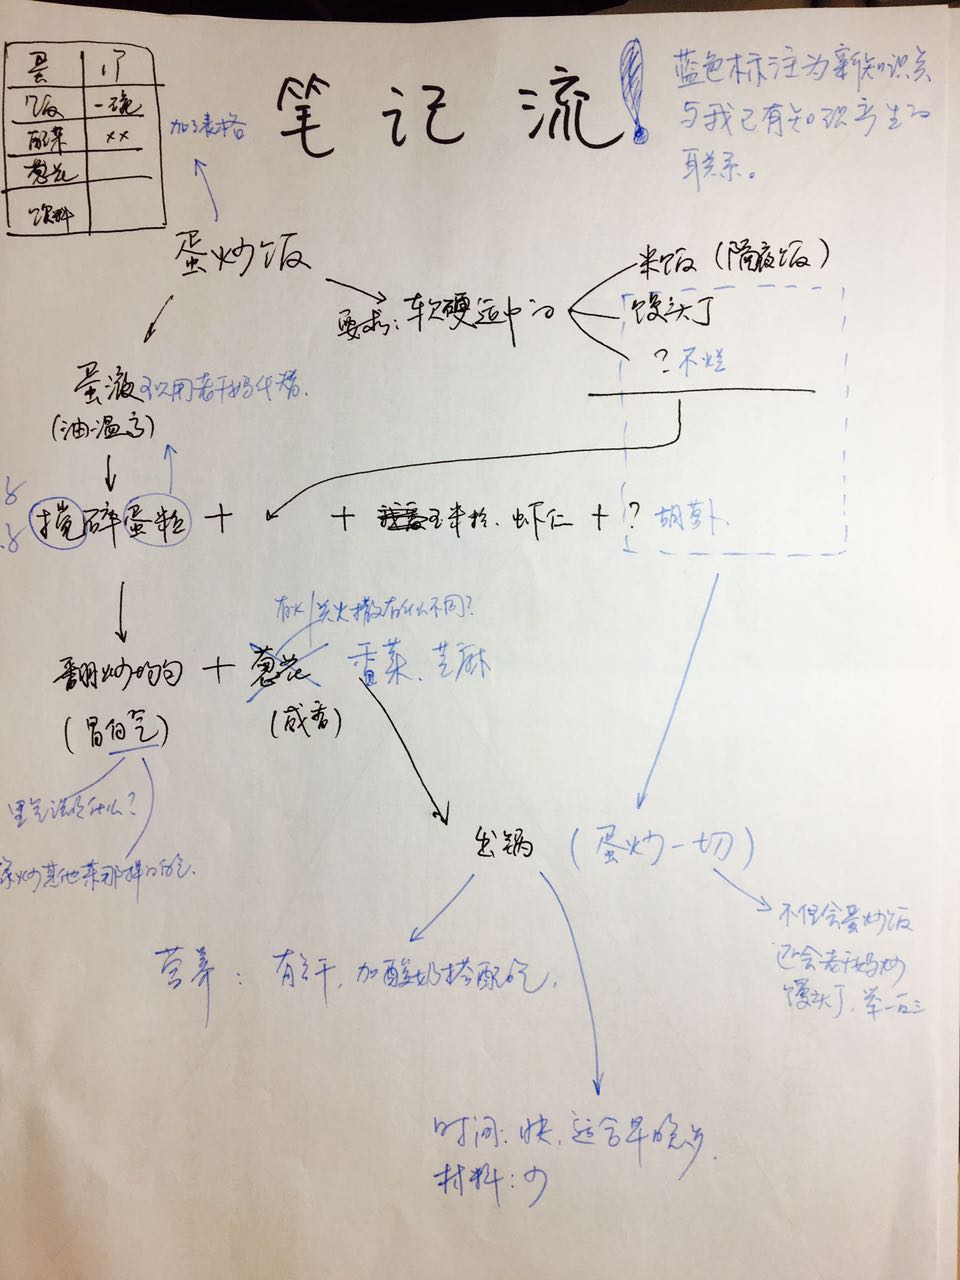 蛋 1个
饭 一碗
配菜 ××
葱花
饮料
加了表格
笔记流!
蓝色标注为新知识点
与我已有知识产生的
联系。
蛋炒饭
要求:软硬适中的
米饭(隔夜饭)
馒头丁
?不烂
蛋液 可以用老干妈代替.
(油温高)
搅碎蛋粒 + + 玉米粒、虾仁 + ? 胡萝卜
有火/关火撒有什么不同?
翻炒均匀 + 葱花 香菜、芝麻
(冒白气) (咸香)
冒气说明什么?
炒其他菜那样的白气.
出锅 (蛋炒一切)
不但会蛋炒饭
还会老干妈炒
馒头丁,举一反三
营养: 有点干,加酸奶搭配吃.
时间:快,适合早晚
材料:少